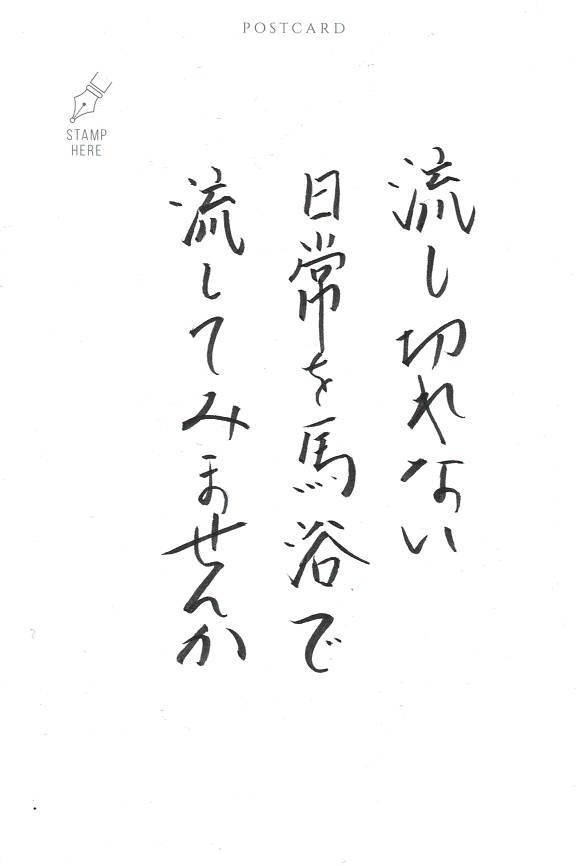 POSTCARD
STAMP
HERE
流し切れない
日常を馬浴で
流してみませんか